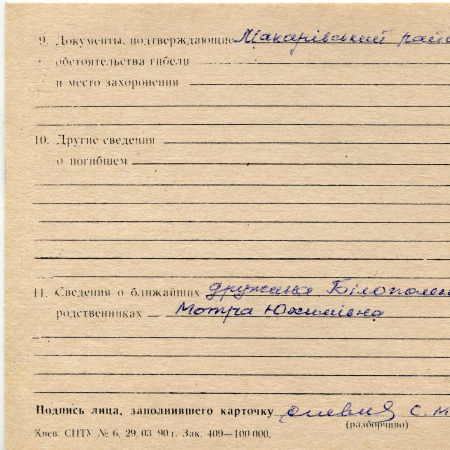 9. Документы, подтверждающие Макарівський рай
обстоятельства гибели
и место захоронения
10. Другие сведения
о погибшем
11. Сведения о ближайших дружина Білополен
родственниках Мотря Юхимівна
Подпись лица, заполнившего карточку С. М
(разборчиво)
Киев. СПТУ № 6, 29. 03. 90 г. Зак. 409—100 000.